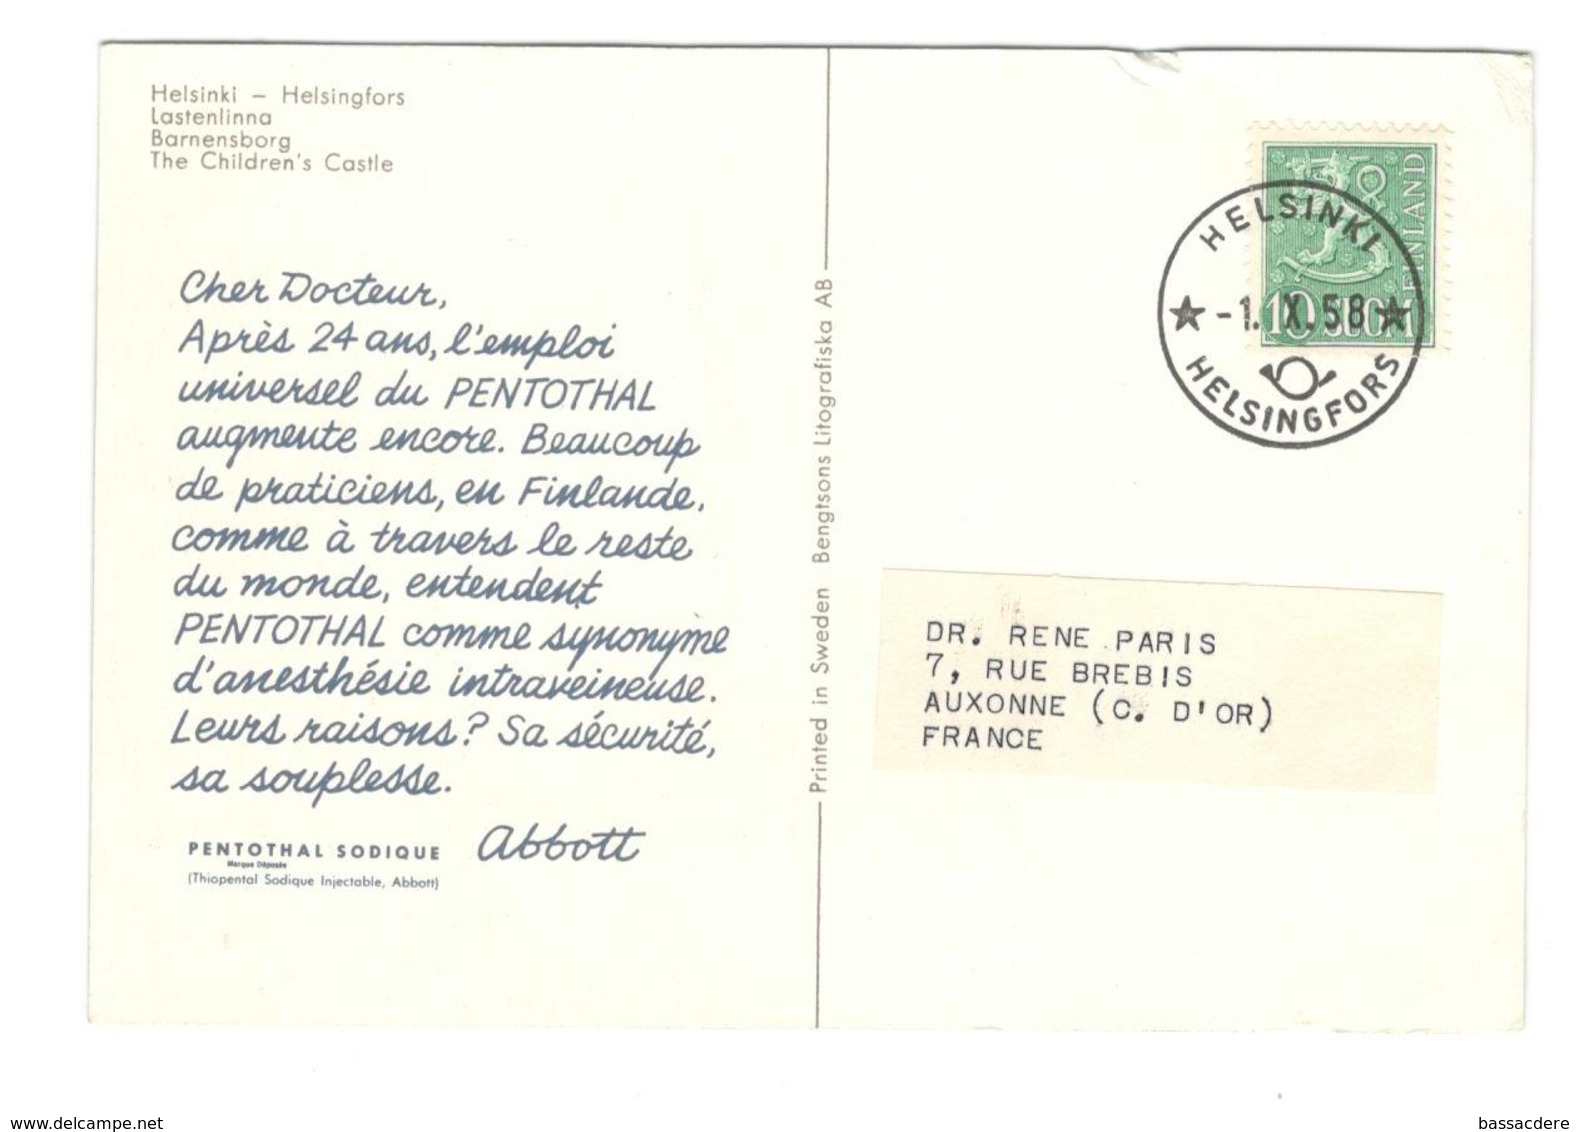 Helsinki – Helsingfors
Lastenlinna
Barnensborg
The Children's Castle
Cher Docteur,
Après 24 ans, l'emploi
universel du PENTOTHAL
augmente encore. Beaucoup
de praticiens, en Finlande,
comme à travers le reste
du monde, entendent
PENTOTHAL comme synonyme
d'anesthésie intraveineuse.
Leurs raisons? Sa sécurité,
sa souplesse.
Abbott
PENTOTHAL SODIQUE
Marque Déposée
(Thiopental Sodique Injectable, Abbott)
Printed in Sweden Bengtsons Litografiska AB
FINLAND
10 SUOMI
HELSINKI
-1. X. 58
HELSINGFORS
DR. RENE PARIS
7, RUE BREBIS
AUXONNE (C. D'OR)
FRANCE
www.delcampe.net
bassacdere